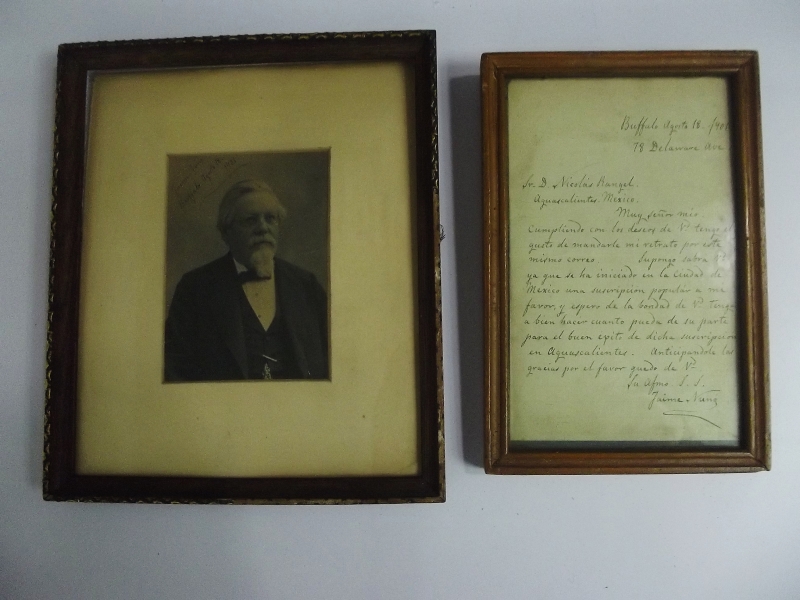 Buffalo Agosto 18. /901
78 Delaware Ave
Sr. D. Nicolás Rangel.
Aguascalientes. Mexico.
Muy señor mio.
Cumpliendo con los deseos de Vd tengo el
gusto de mandarle mi retrato por este
mismo correo Supongo sabra Vd
ya que se ha iniciado en la Ciudad de
Mexico una suscripcion popular a mi
favor, y espero de la bondad de Vd tenga
a bien hacer cuanto pueda de su parte
para el buen exito de dicha suscripcion
en Aguascalientes. Anticipandole las
gracias por el favor quedo de Vd
Su Afmo. S. S.
Jaime Nunó